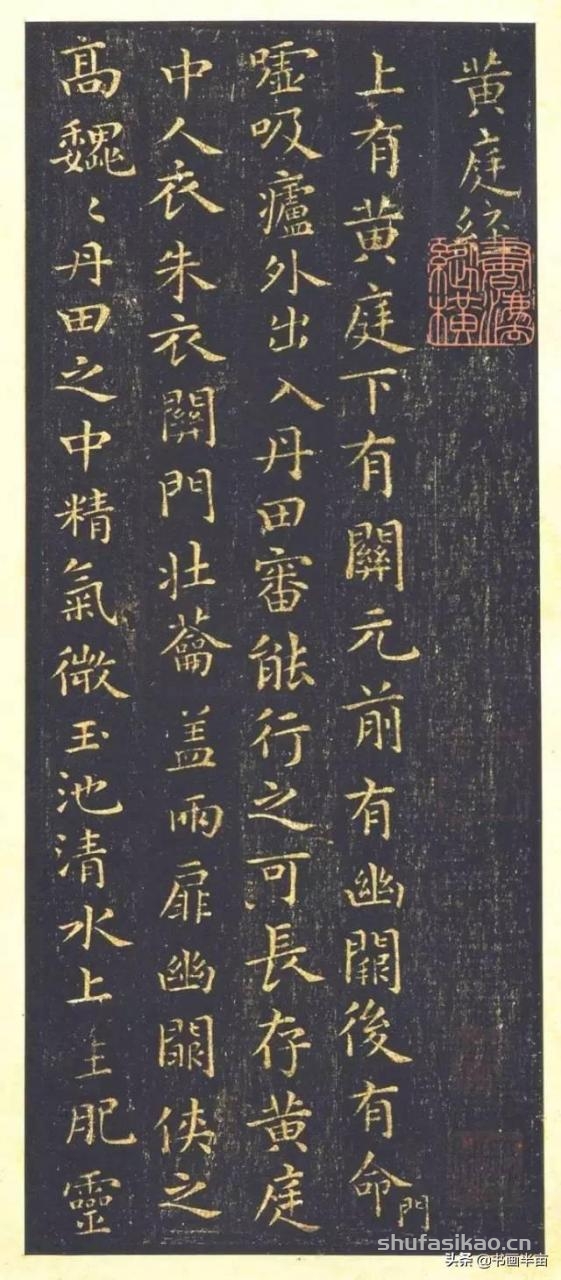 黄庭經
上有黄庭下有關元前有幽闕後有命門
噓吸廬外出入丹田審能行之可長存黄庭
中人衣朱衣關門壯蘥盖兩扉幽闕俠之
高魏〻丹田之中精氣微玉池清水上生肥靈
shufasikao.cn
头条 @书画半亩